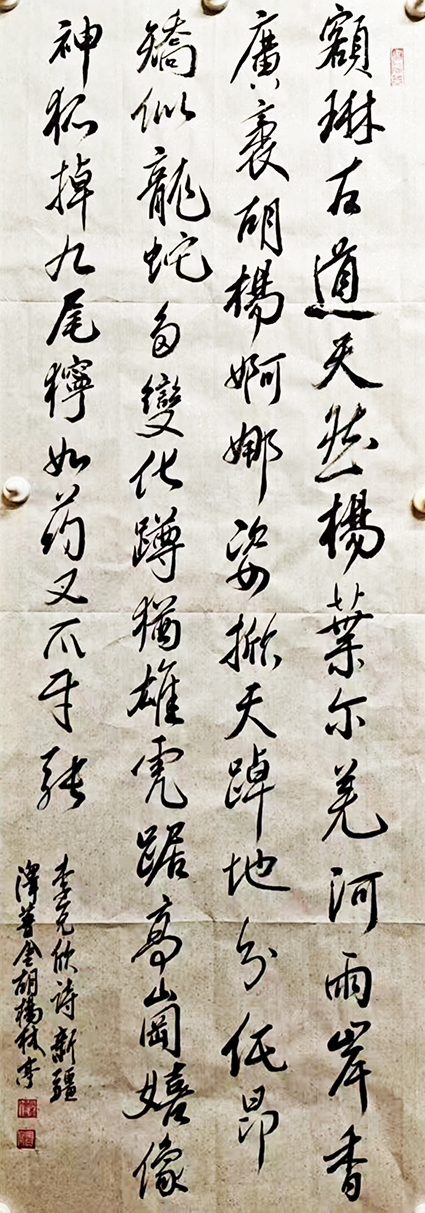 額琳古道天然楊葉尔羌河兩岸香
廣袤胡楊婀娜姿掀天踔地分低昂
矯似龍蛇多變化蹲猶雄虎踞高崗嬉像
神猴掉九尾獰如药叉爪牙張
李克欣詩新疆
澤普金胡楊林亭